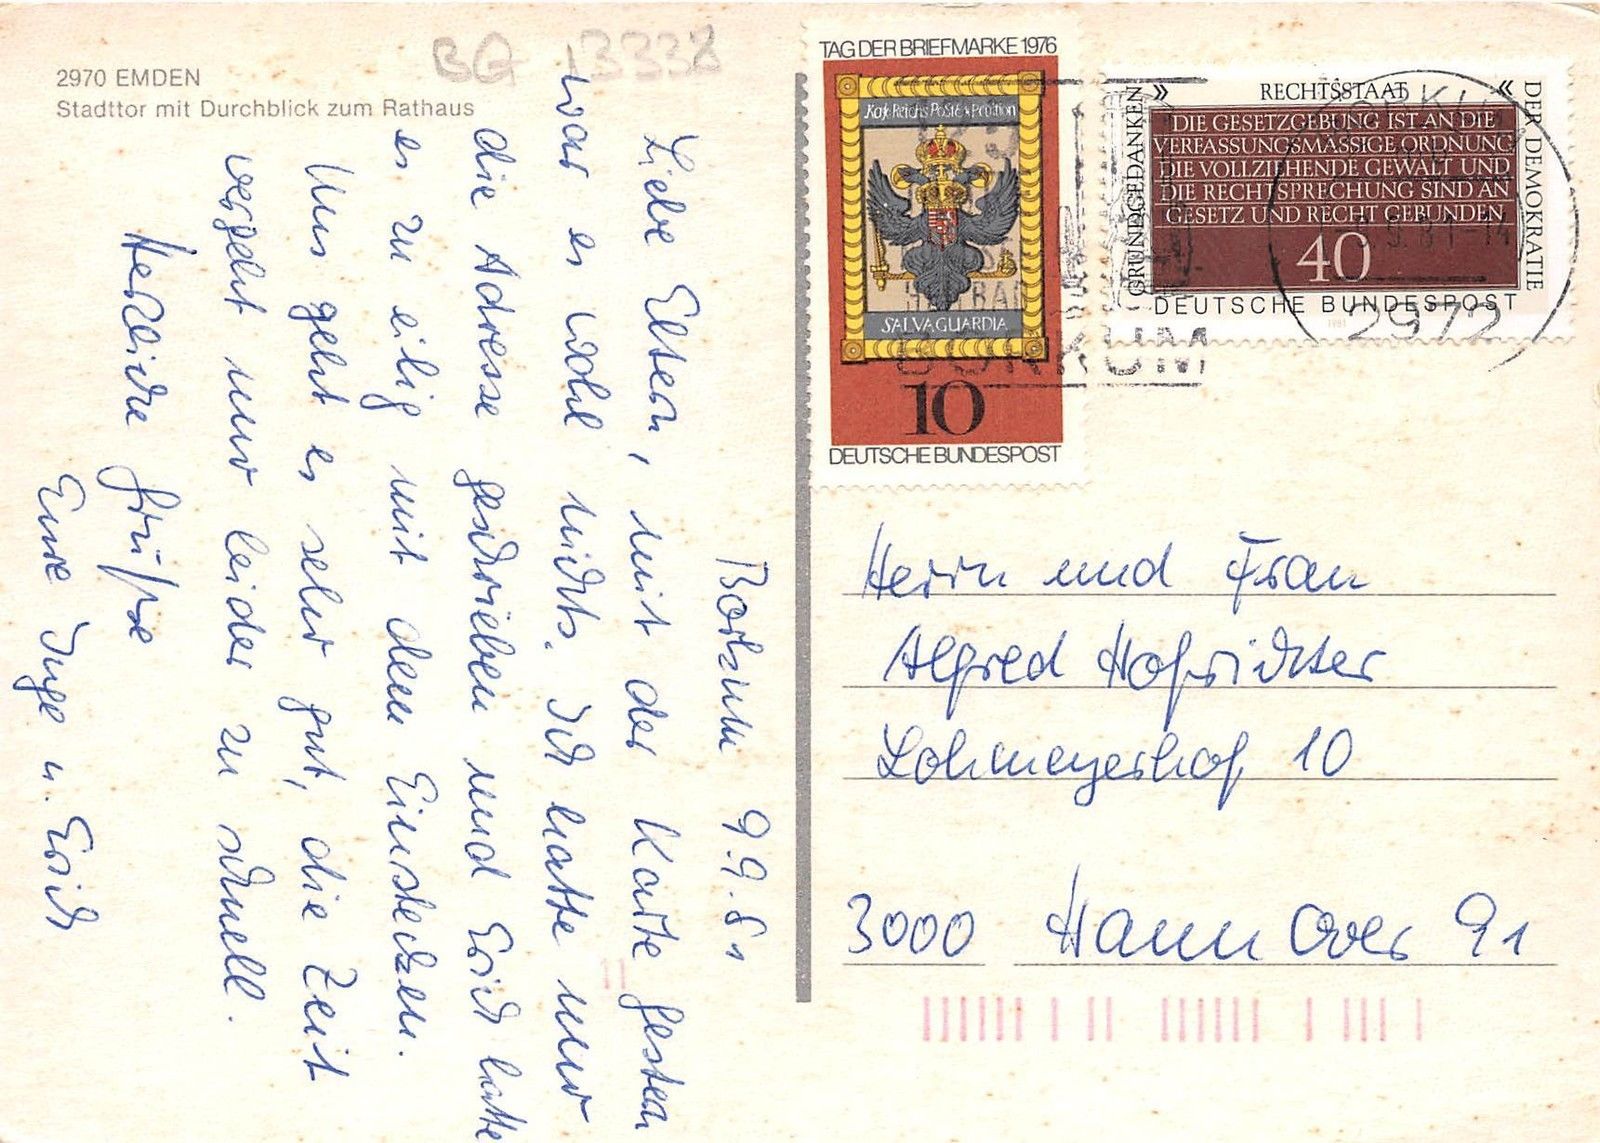 2970 EMDEN
Stadttor mit Durchblick zum Rathaus
BG 13338
Borkum 9.9.81
Liebe Eltern, mit der Karte gestern
war es wohl nichts. Ich hatte nur
die Adresse geschrieben und Erich hatte
es zu eilig mit dem Einstecken.
Uns geht es sehr gut, die Zeit
vergeht nur leider zu schnell.
Herzliche Grüße
Eure Inge u. Erich
TAG DER BRIEFMARKE 1976
SALVAGUARDIA
10
DEUTSCHE BUNDESPOST
GRUNDGEDANKEN
DER DEMOKRATIE
» RECHTSSTAAT «
DIE GESETZGEBUNG IST AN DIE
VERFASSUNGSMÄSSIGE ORDNUNG
DIE VOLLZIEHENDE GEWALT UND
DIE RECHTSPRECHUNG SIND AN
GESETZ UND RECHT GEBUNDEN
40
DEUTSCHE BUNDESPOST
1981
BORKUM
2972
BORKUM
Herrn und Frau
Alfred Hofrichter
Lohmeyerhof 10
3000 Hannover 91